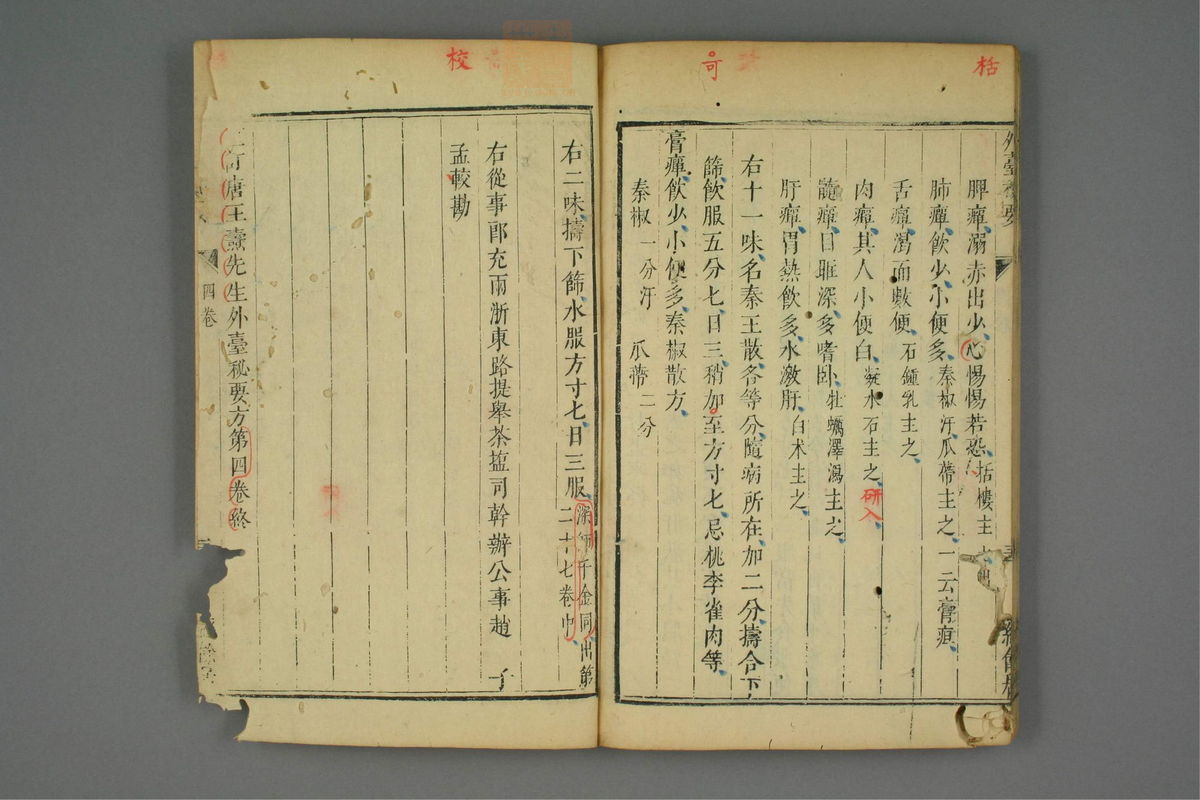 栝
可
校
外臺秘要
脾癉溺赤出少心惕惕若恐栝樓主
肺癉飲少小便多秦椒汗瓜蒂主之一云膏疸
舌癉渴而數便石鍾乳主之
肉癉其人小便白凝水石主之
研入
髓癉目眶深多嗜卧牡蠣澤瀉主之
肝癉胃熱飲多水激肝白朮主之
右十一味名秦王散各等分隨病所在加二分擣合下
篩飲服五分匕日三稍加至方寸匕忌桃李雀肉等
膏癉飲少小便多秦椒散方
秦椒一分汗 瓜蒂二分
右二味擣下篩水服方寸匕日三服深師千金同出第
二十七卷中
右從事郎充兩浙東路提舉茶塩司幹辦公事趙 子
孟較勘
訂唐王燾先生外臺秘要方第四卷終
四卷